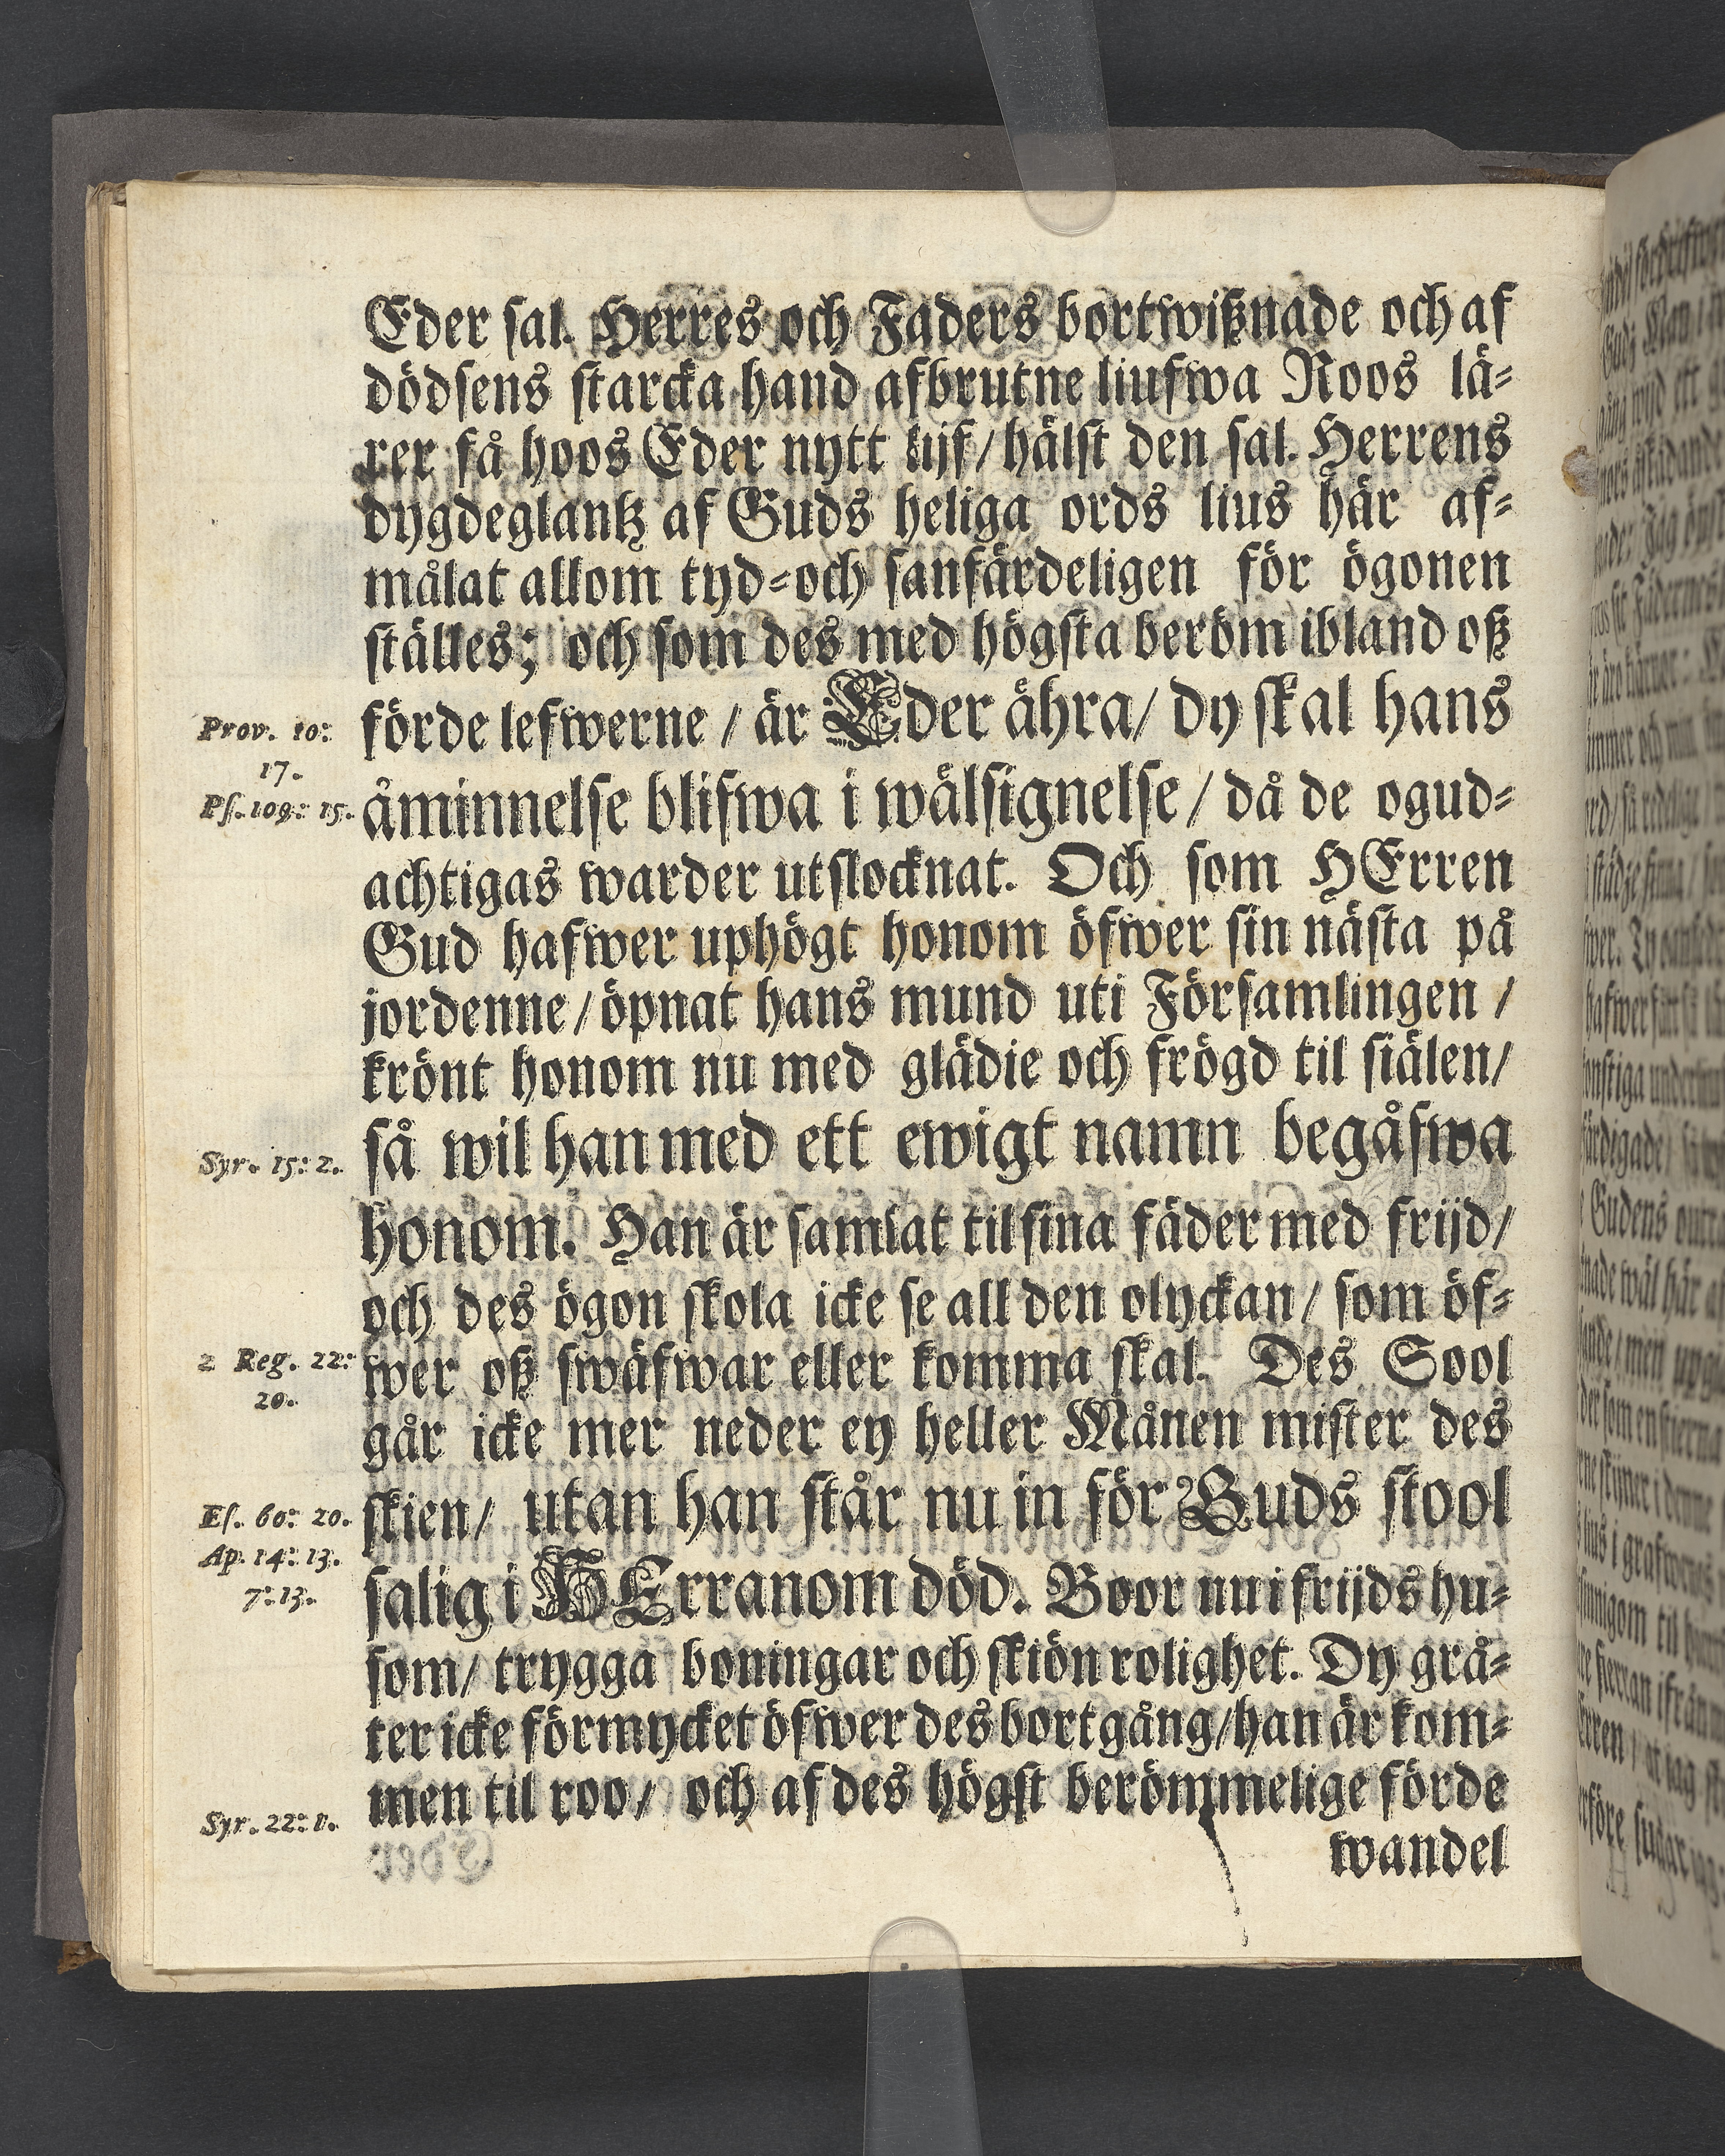 Eder sal. Herres och Faders bortwißnade och af
dödsens starcka hand afbrutne liufwa Roos lä-
rer få hoos Eder nytt lijf / hälst den sal. Herrens
dygdeglantz af Guds heliga ords lius här af-
målat allom tyd- och sanfärdeligen för ögonen
ställes; och som des med högsta beröm ibland oß
Prov. 10:
17.
förde lefwerne / är Eder ähra / dy skal hans
Ps. 109: 15.
åminnelse blifwa i wälsignelse / då de ogud-
achtigas warder utslocknat. Och som HErren
Gud hafwer uphögt honom öfwer sin nästa på
jordenne / öpnat hans mund uti Församlingen /
krönt honom nu med glädie och frögd til siälen /
Syr. 15: 2.
så wil han med ett ewigt namn begåfwa
honom. Han är samlat til sina fäder med frijd /
och des ögon skola icke se all den olyckan / som öf-
2 Reg. 22:
20.
wer oß swäfwar eller komma skal. Des Sool
går icke mer neder ey heller Månen mister des
Es. 60: 20.
skien / utan han står nu in för Guds stool
Ap. 14: 13.
7: 13.
salig i HErranom död. Boor nu i frijds hu-
som / trygga boningar och skiön rolighet. Dy grå-
ter icke förmycket öfwer des bortgång / han är kom-
Syr. 22:
men til roo / och af des högst berömmelige förde
wandel